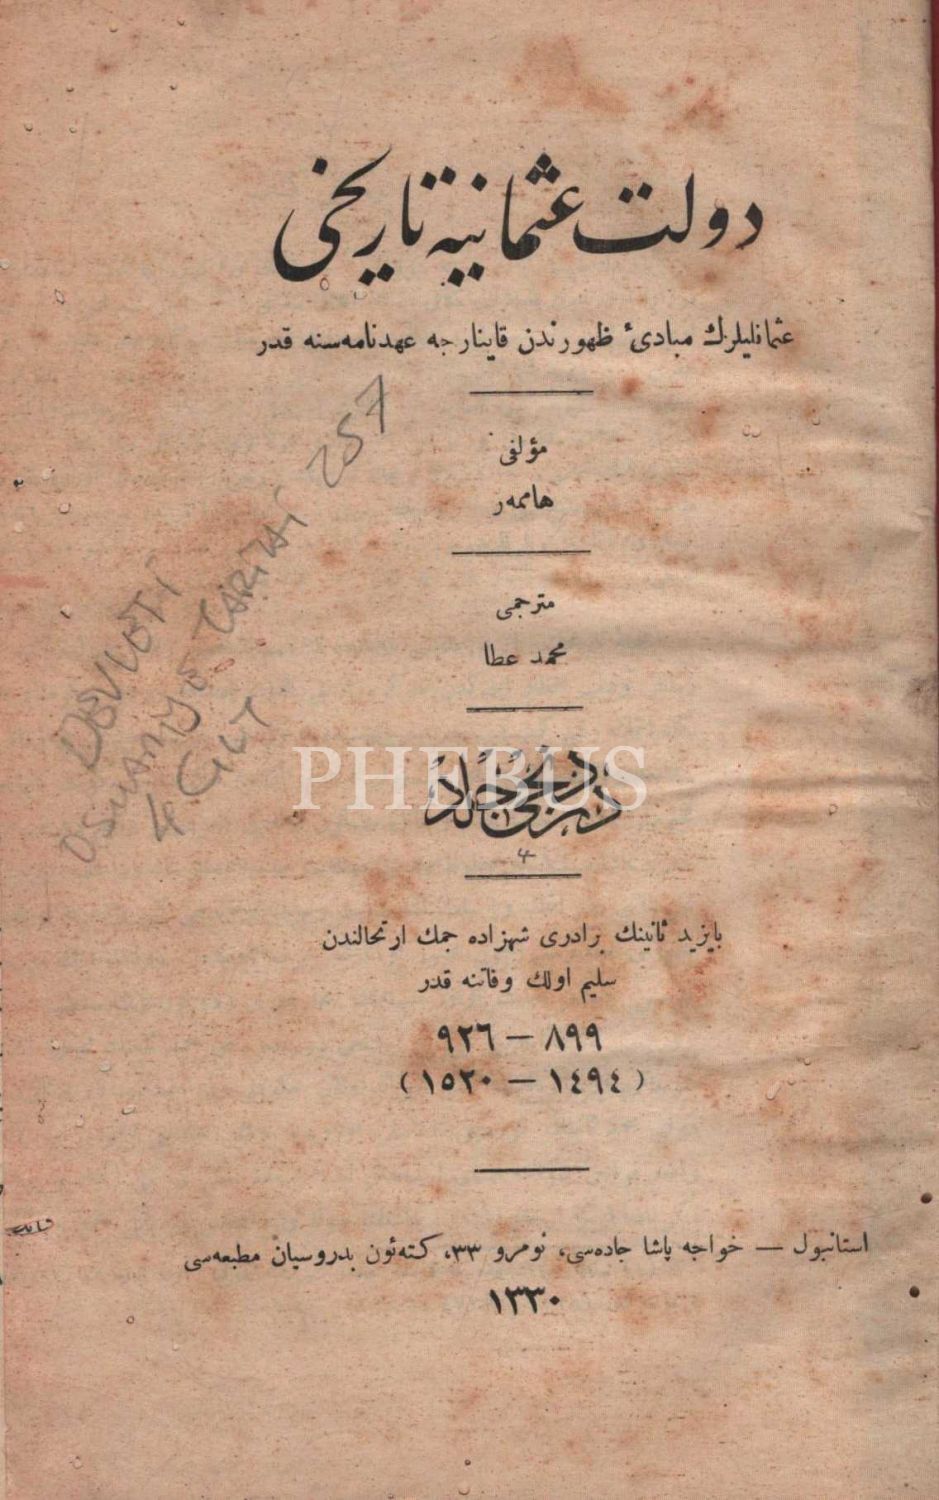 دولت عثمانیه تاریخی
عثمانلیلرك مبادئ ظهورندن قاینارجه عهدنامه‌سنه قدر
مؤلفی
هاممه‌ر
مترجمی
محمد عطا
دردنجی جلد
۴
بایزید ثانینك برادری شهزاده جمك ارتحالندن
سلیم اولك وفاتنه قدر
٨٩٩ — ٩٢٦
(١٤٩٤ — ١٥٢٠)
استانبول — خواجه پاشا جاده‌سی، نومرو ٣٣، كته‌ئون بدروسیان مطبعه‌سی
١٣٣٠
DEVLETİ
OSMANİYE TARİHİ 257
4 CİLT
PHEBUS